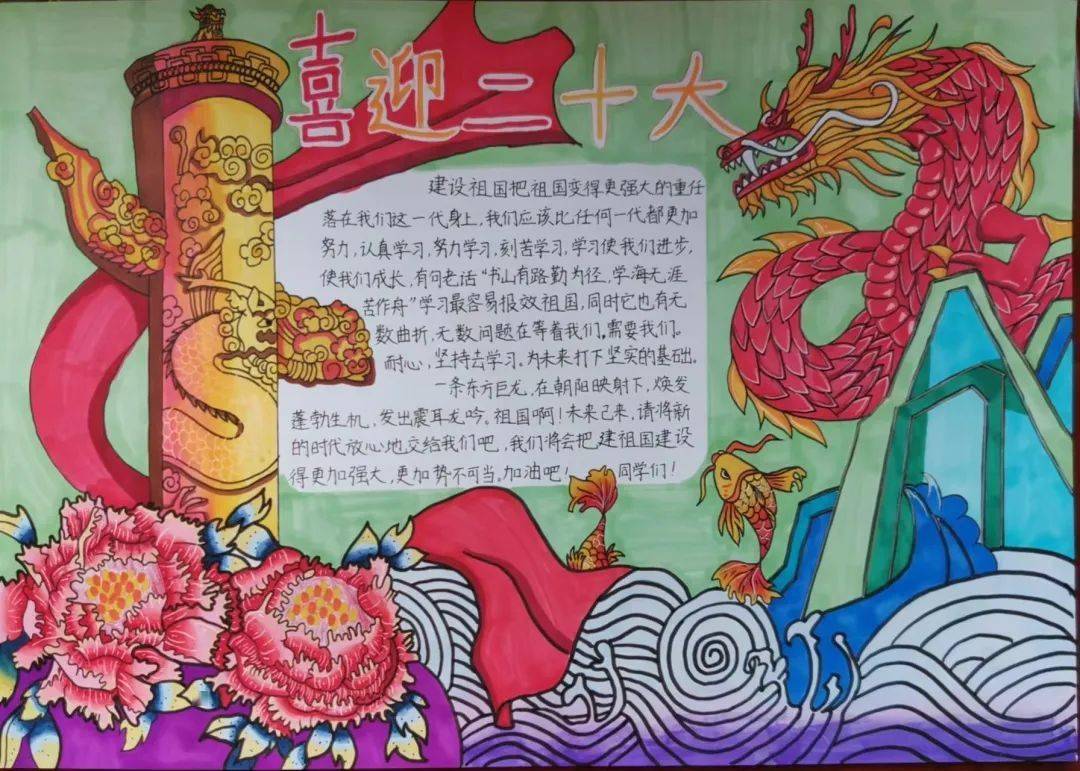 喜迎二十大
建设祖国把祖国变得更强大的重任
落在我们这一代身上,我们应该比任何一代都更加
努力,认真学习,努力学习,刻苦学习,学习使我们进步,
使我们成长,有句老话“书山有路勤为径,学海无涯
苦作舟”学习最容易报效祖国,同时它也有无
数曲折,无数问题在等着我们。需要我们。
耐心,坚持去学习。为未来打下坚实的基础。
一条东方巨龙,在朝阳映射下,焕发
蓬勃生机,发出震耳龙吟。祖国啊!未来已来,请将新
的时代放心地交给我们吧,我们将会把建祖国建设
得更加强大,更加势不可当。加油吧!同学们!